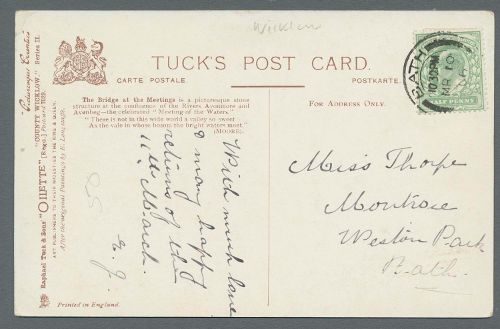 Wicklow
TUCK'S POST CARD.
CARTE POSTALE.
POSTKARTE.
The Bridge at the Meetings is a picturesque stone
structure at the confluence of the Rivers Avonmore and
Avonbeg—the celebrated "Meeting of the Waters."
"There is not in this wide world a valley so sweet
As the vale in whose bosom the bright waters meet."
(MOORE).
FOR ADDRESS ONLY.
BATH
10.30PM
MR 10
HALF PENNY
With much love
& many happy
returns of the
11th March.
E. J.
Miss Thorpe
Montrose
Weston Park
Bath.
Picturesque Counties
"COUNTY WICKLOW," Series II.
Raphael Tuck & Sons' "OILETTE" [Regd.] Postcard
ART PUBLISHERS TO THEIR MAJESTIES THE KING & QUEEN.
After the original Paintings by
Printed in England.